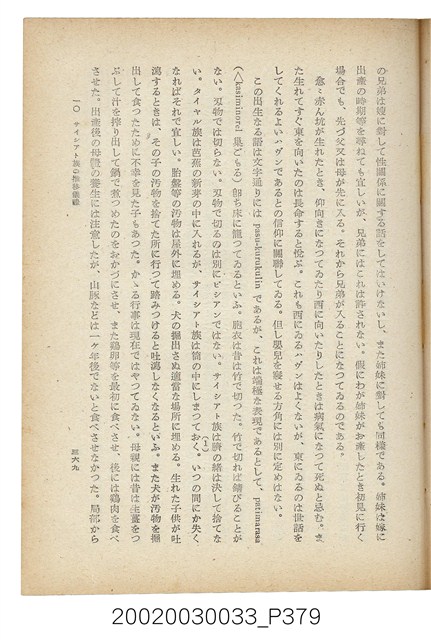 の兄弟は嫂に對して性關係に關する話をしてはいけないし、また姉妹に對しても同樣である。姉妹は嫁に
出産の時期等を尋ねても宜しいが、兄弟にはこれは許されない。假にわが姉妹がお産したとき初見に行く
場合でも、先づ父又は母が先に入る。それから兄弟が入ることになつてゐるのである。
愈〻赤ん坊が生れたとき、仰向きになつてゐたり西に向いたりしたときは病氣になつて死ぬと忌む。ま
た生れてすぐ東を向いたのは長命すると悅ぶ。これも西にゐるハヴンはよくないが、東にゐるのは世話を
してくれるよいハヴンであるとの信仰に關聯してゐる。但し嬰兒を寢せる方角には別に定めはない。
この出生なる語は文字通りには pasu-kurakulin であるが、これは端極な表現であるとして、patimarasa
(<kasiminorel 巢ごもる) 卽ち床に籠つてゐるといふ。胞衣は昔は竹で切つた。竹で切れば錆びることが
ない。刃物では切らない。刃物で切るのは別にピシアンではない。サイシアト族は臍の緖は決して捨てな
い。タイヤル族は芭蕉の新芽の中に入れるが、サイシアト族は筒の中にしまつておく。いつの間にか失く
なればそれで宜しい。胎盤等の汚物は屋外に埋める。犬の掘出さぬ適當な場所に埋める。生れた子供が吐
瀉するときは、その子の汚物を捨てた所に行つて踏みつけると吐瀉しなくなるといふ。また犬が汚物を掘
出して食つたために不幸を見た子もあつた。かゝる行事は現在ではやつてゐない。母親には昔は生薑をつ
ぶして汁を搾り出して鍋で煮つめたのをおかづにさせ、また鷄卵等を最初に食べさせ、後には鷄肉を食べ
させた。出産後の母體の養生には注意したが、山豚などは一ケ年後でないと食べさせなかつた。局部から
(1)
一〇 サイシアト族の
三六九
20020030033_P379